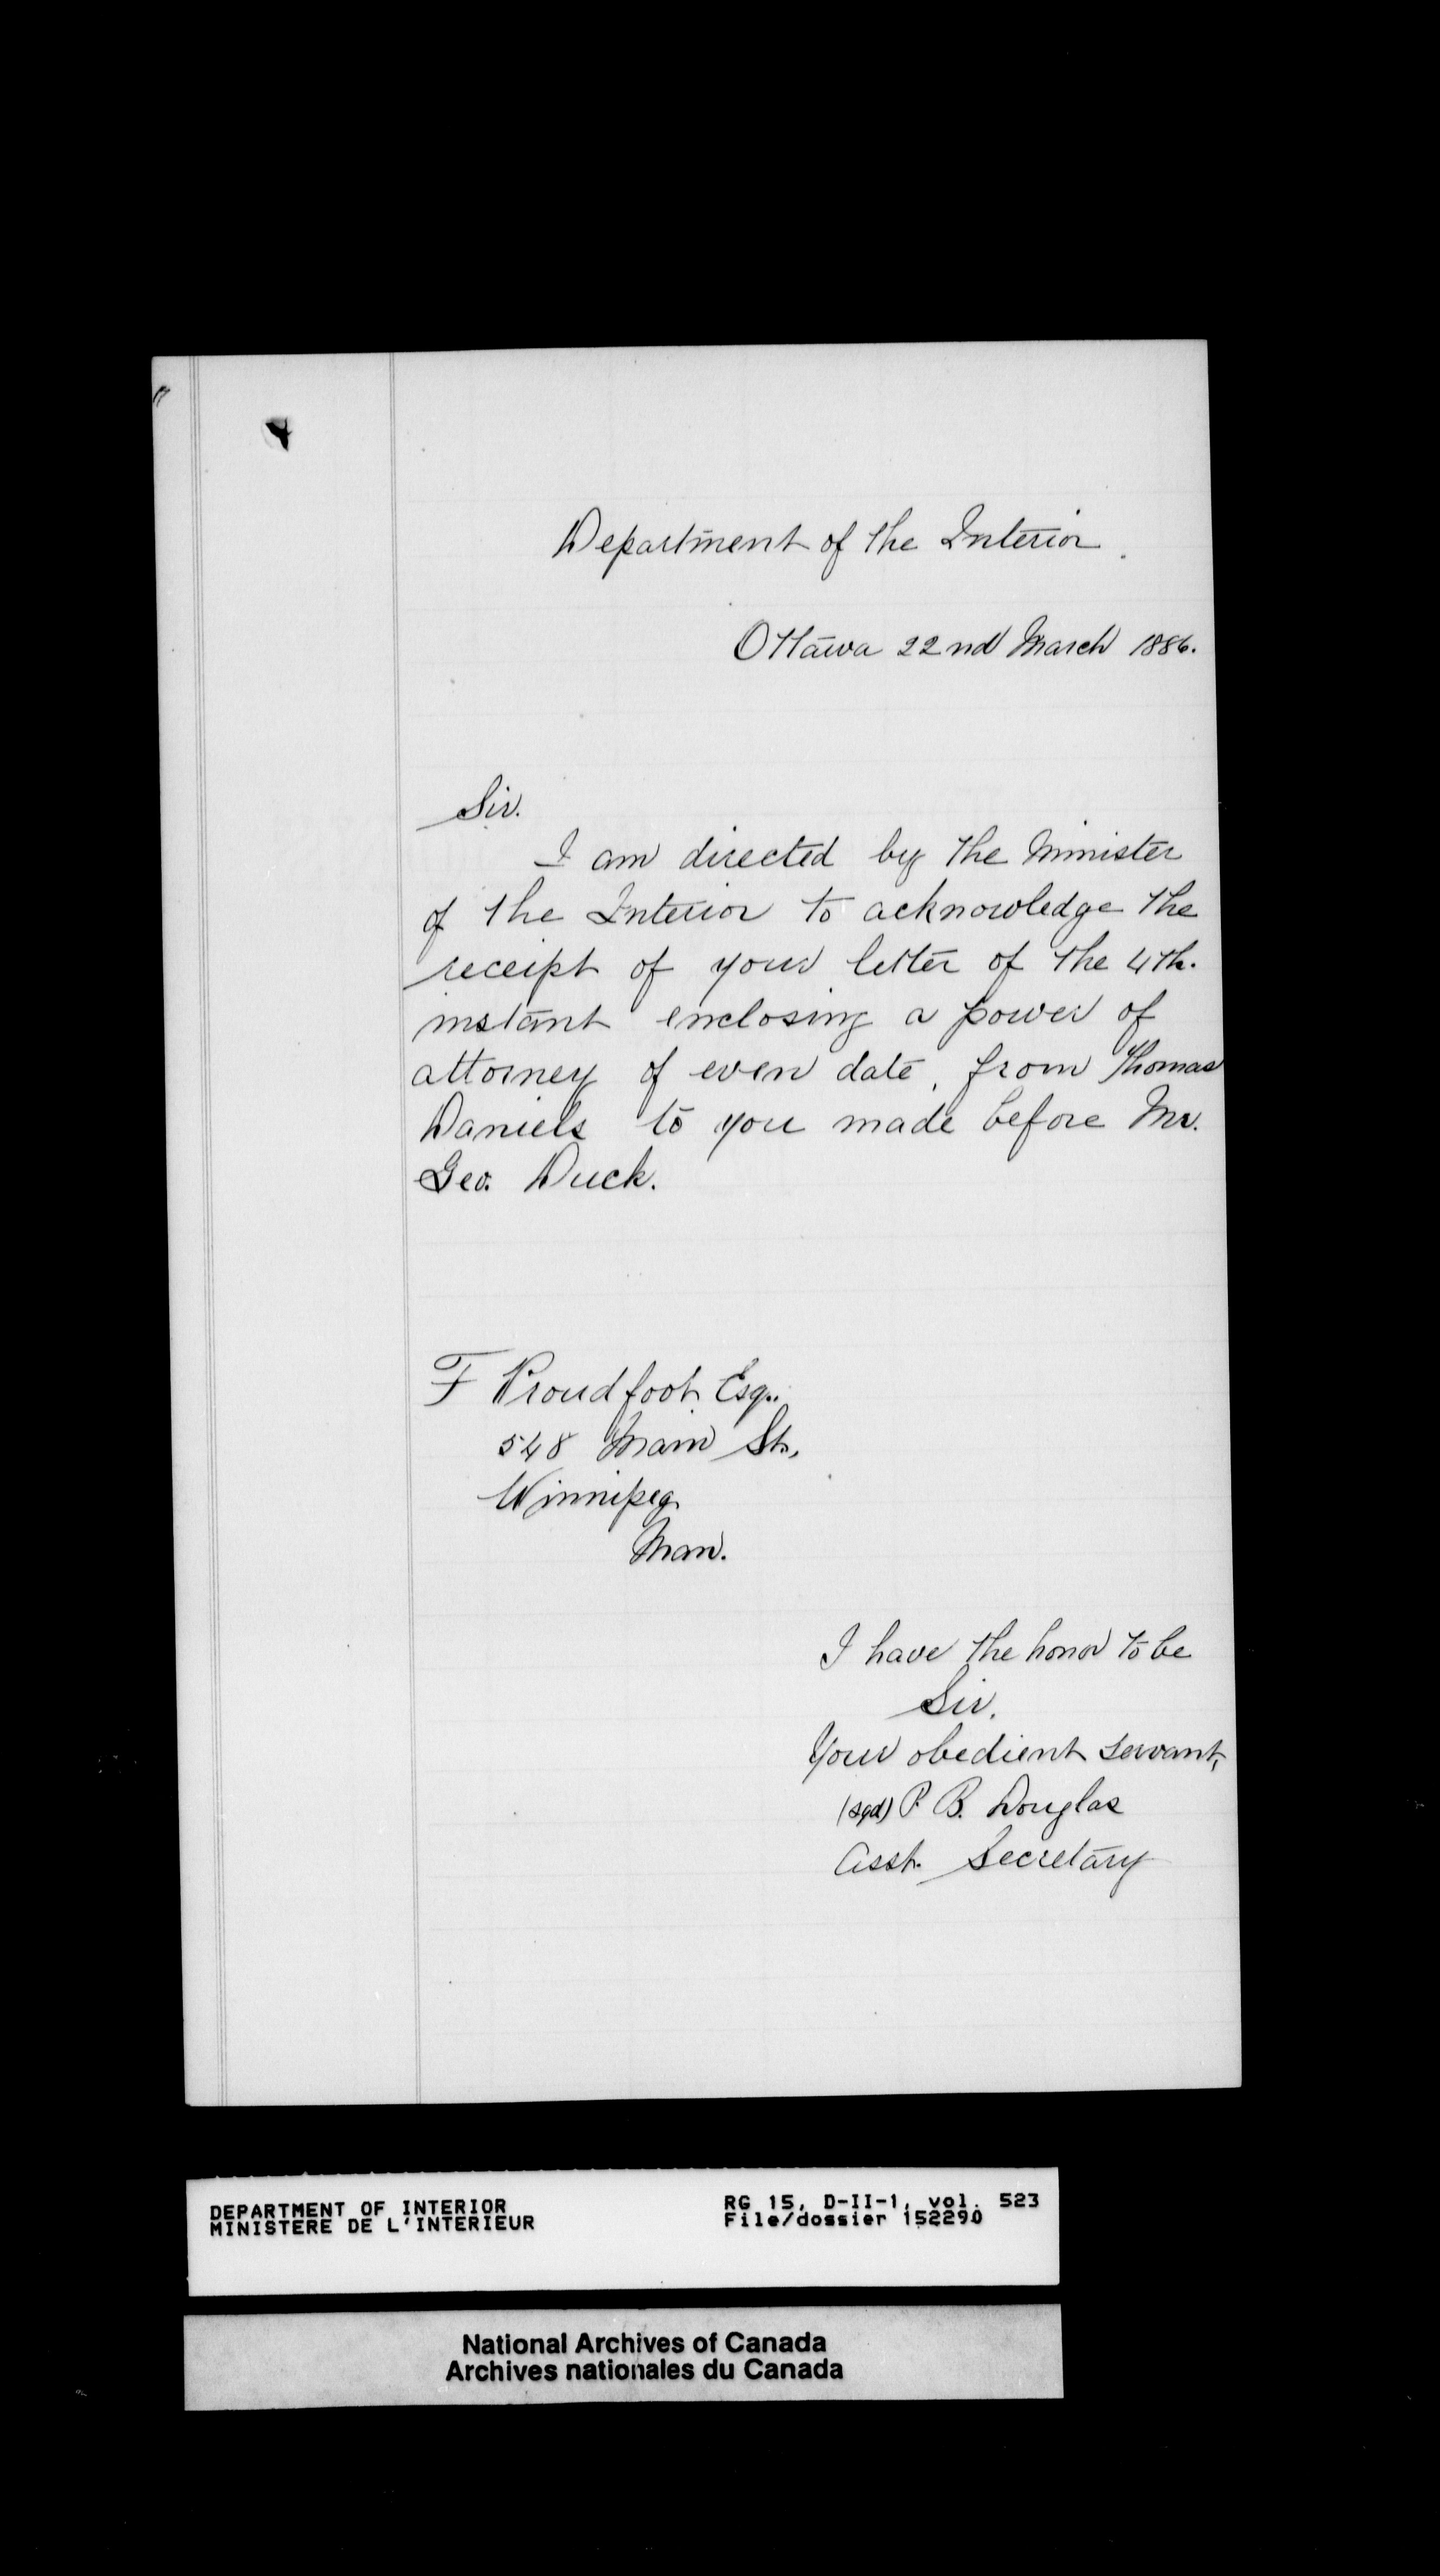 Department of the Interior.
Ottawa 22nd March 1886.
Sir.
I am directed by the Minister
of the Interior to acknowledge the
receipt of your letter of the 4th.
instant enclosing a power of
attorney of even date, from Thomas
Daniels to you made before Mr.
Geo. Duck.
F Proudfoot Esq.
548 Main St.,
Winnipeg
Man.
I have the honor to be
Sir.
Your obedient servant,
(sgd) P. B. Douglas
Asst. Secretary
DEPARTMENT OF INTERIOR
MINISTERE DE L'INTERIEUR
RG 15, D-II-1, vol. 523
File/dossier 152290
National Archives of Canada
Archives nationales du Canada